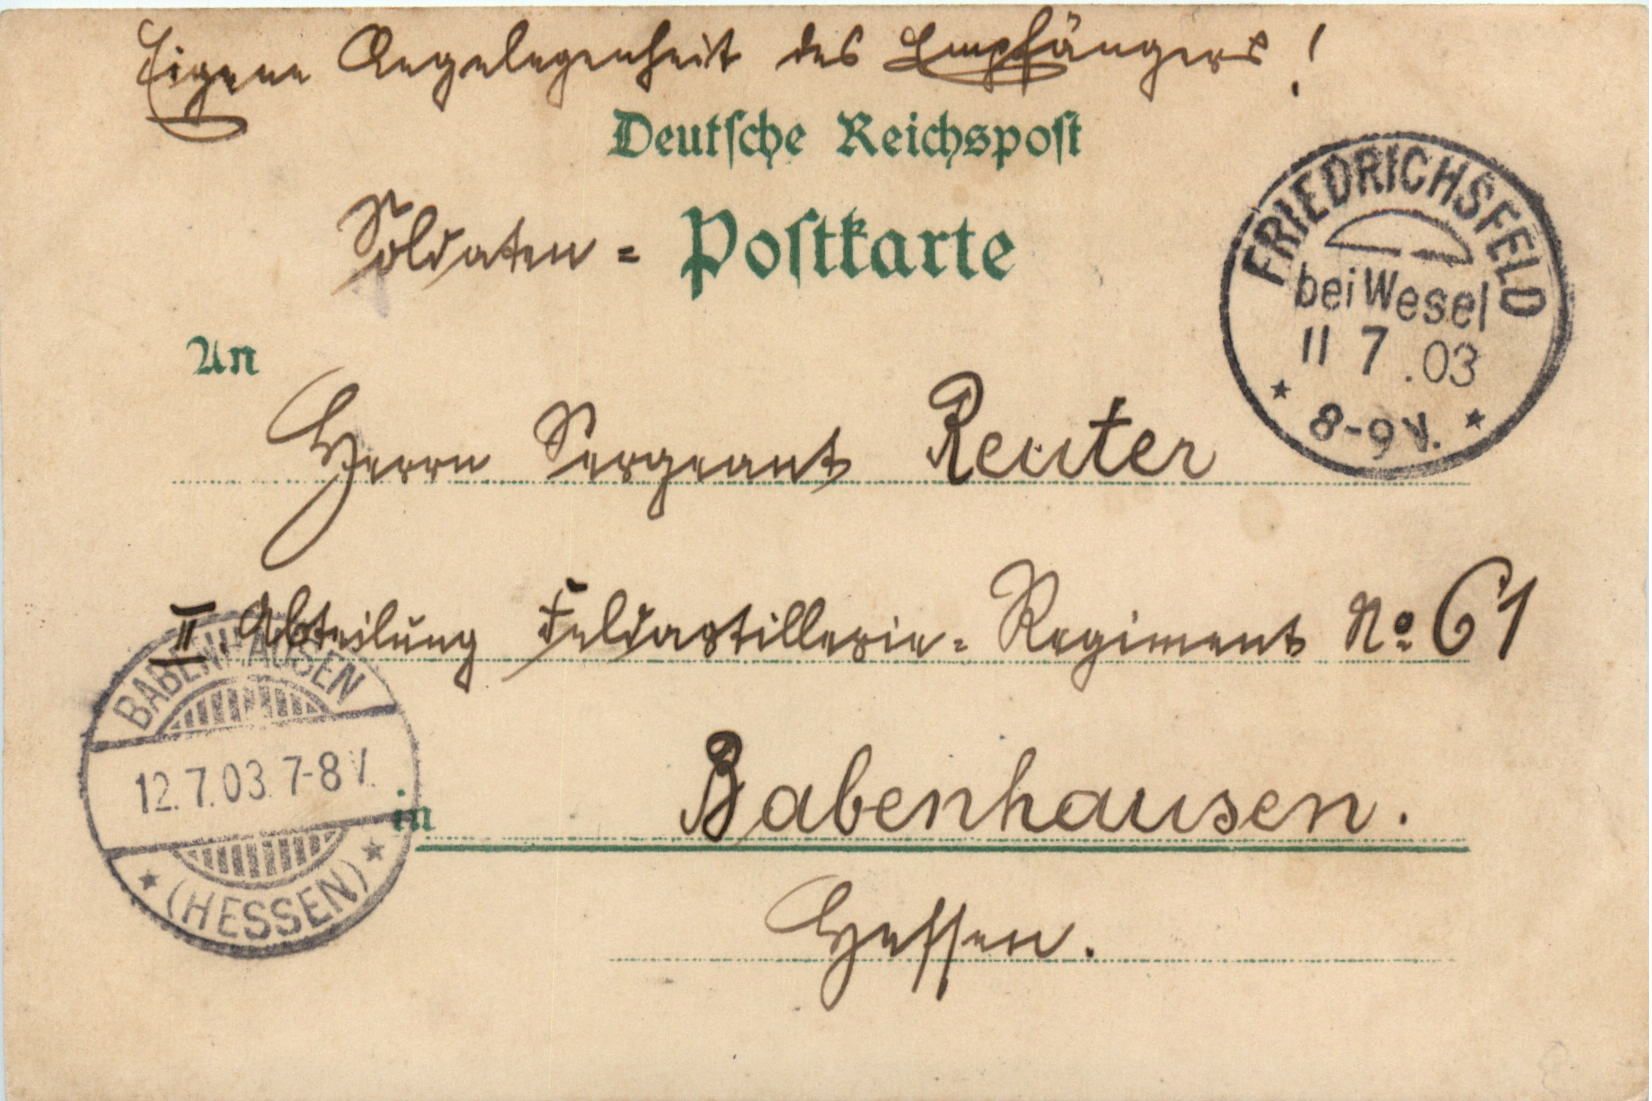 Eigene Angelegenheit des Empfängers!
Deutsche Reichspost
Soldaten = Postkarte
FRIEDRICHSFELD
bei Wesel
11 7 .03
* 8-9 V. *
An
Herrn Sergeant Reuter
II. Abteilung Feldartillerie-Regiment No 61
BABENHAUSEN
12.7.03. 7-8 V.
* (HESSEN) *
in Babenhausen.
Hessen.